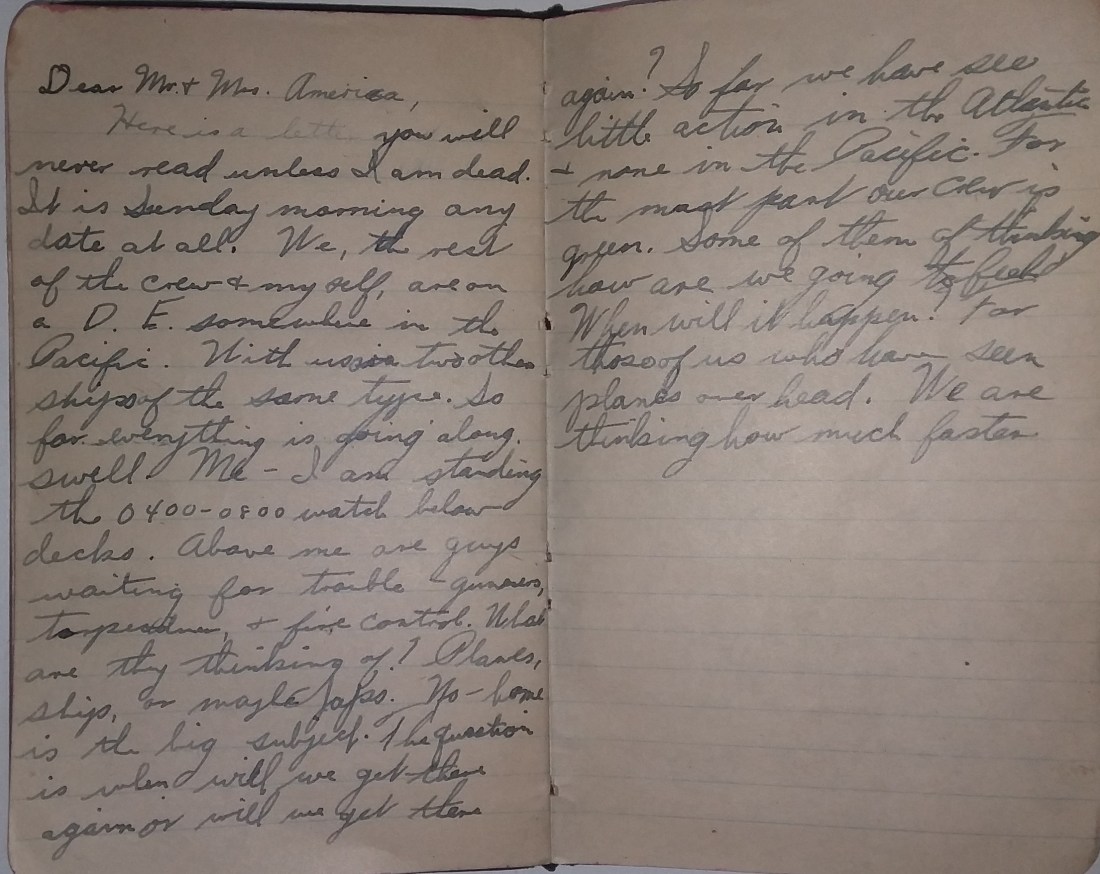 Dear Mr. & Mrs. America,
Here is a letter you will
never read unless I am dead.
It is Sunday morning any
date at all. We, the rest
of the crew & my self, are on
a D. E. somewhere in the
Pacific. With us are two other
ships of the same type. So
far everything is going along
swell. Me - I am standing
the 0400-0800 watch below
decks. Above me are guys
waiting for trouble - gunners,
torpedomen, & fire control. What
are they thinking of? Planes,
ship, or maybe Japs. No - home
is the big subject. The question
is when will we get there
again or will we get there
again? So far we have see
little action in the Atlantic
& none in the Pacific. For
the most part our crew is
green. Some of them of thinking
how are we going to feel?
When will it happen? For
those of us who have seen
planes over head. We are
thinking how much faster